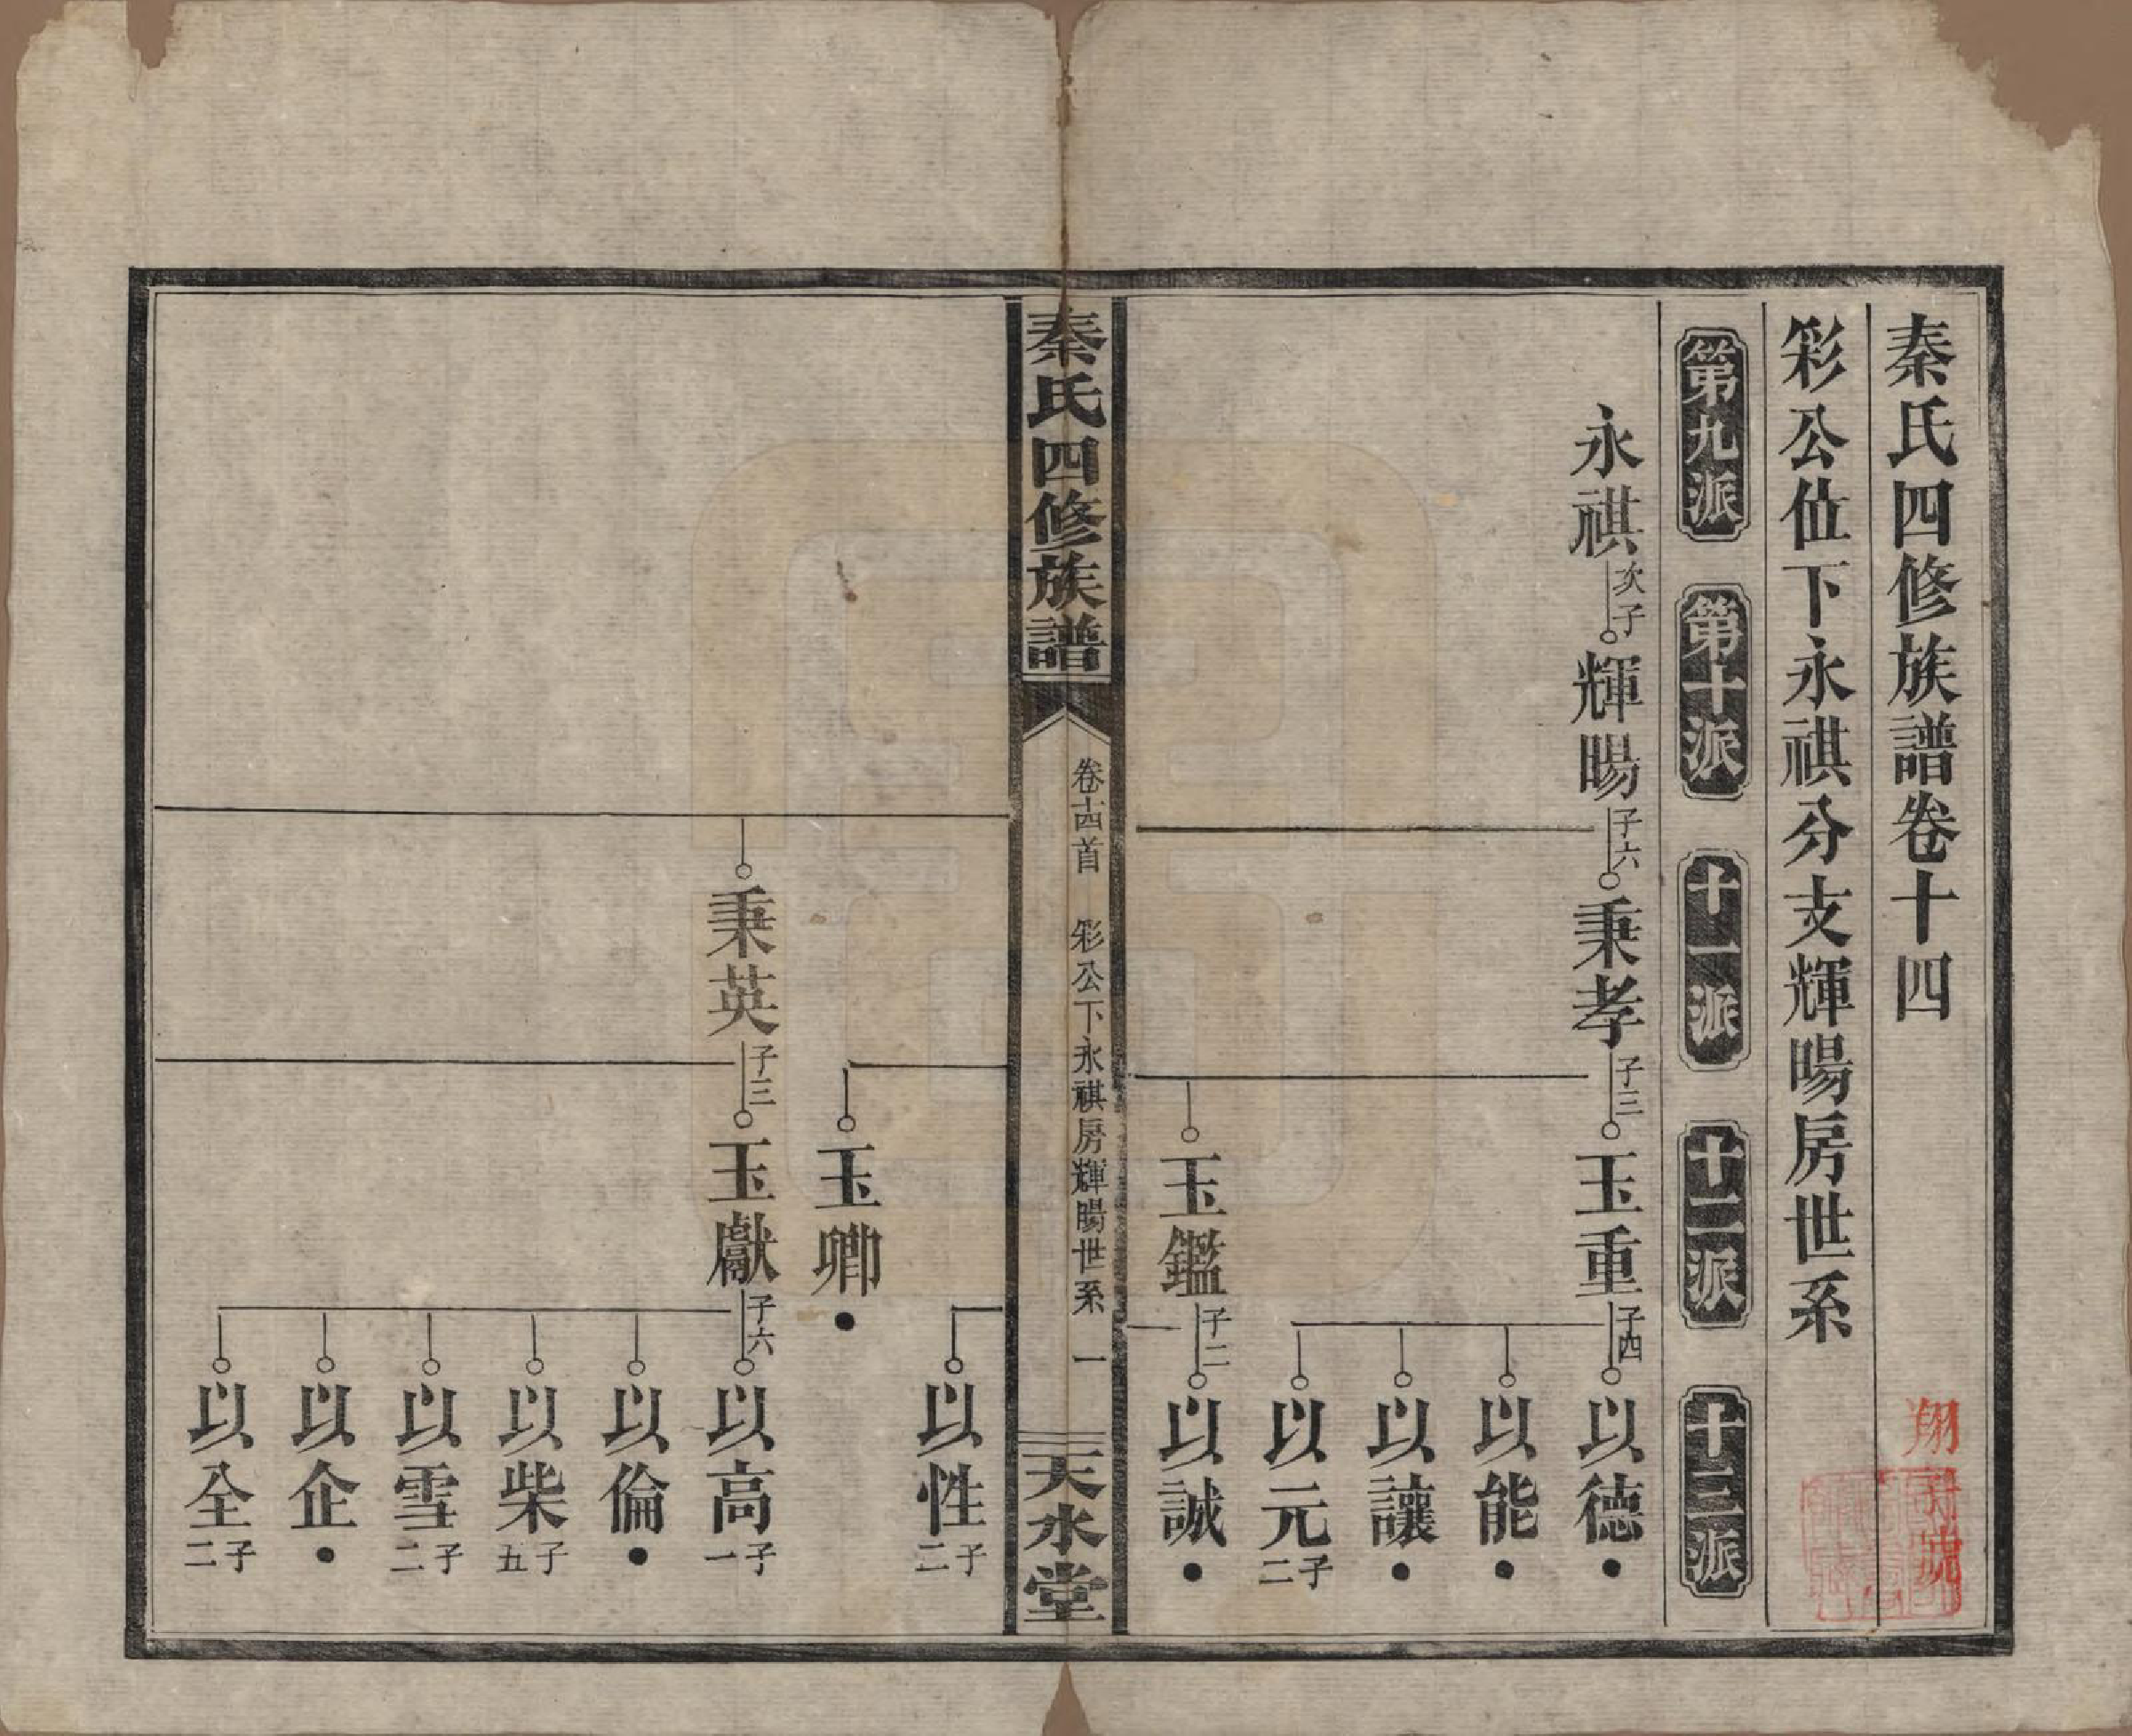 秦氏四修族譜卷十四
彩公位下永祺分支輝暘房世系
第九派 第十派 十一派 十二派 十三派
永祺 次子 輝暘 子六 秉孝 子三 玉重 子四 以德 ●
以能 ●
以讓 ●
以元 子二
玉鑑 子二 以誠 ●
秦氏四修族譜 卷十四首 彩公下永祺房輝暘世系 一 天水堂
以性 子二
玉卿 ●
秉英 子三 玉獻 子六 以高 子一
以倫 ●
以柴 子五
以雪 子二
以企 ●
以全 子二
翔
號